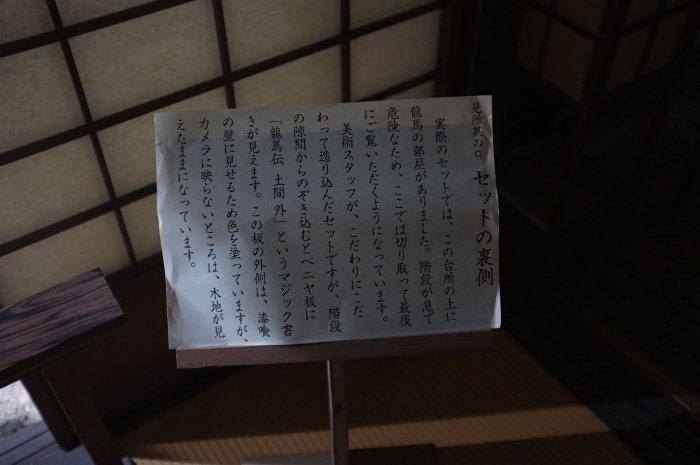 見所其の9 セットの裏側
実際のセットでは、この台所の上に
龍馬の部屋がありました。階段が急で
危険なため、ここでは切り取って最後
にご覧いただくようになっています。
美術スタッフが、こだわりにこだ
わって造り込んだセットですが、階段
の隙間からのぞき込むとベニヤ板に
「龍馬伝 土間 外」というマジック書
きが見えます。この板の外側は、漆喰
の壁に見せるため色を塗っていますが、
カメラに映らないところは、木地が見
えたままになっています。